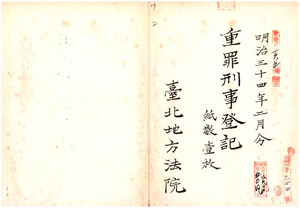 明治三十四年二月分
重罪刑事登記
紙數壹枚
臺北地方法院